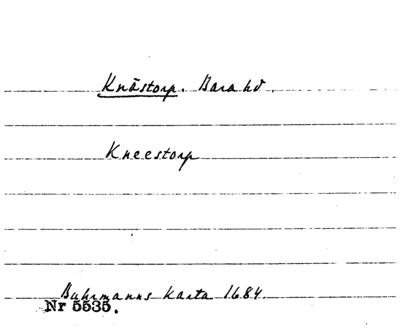 Knästorp. Bara hd.
Kneestorp
Buhrmanns karta 1684.
Nr 5535.